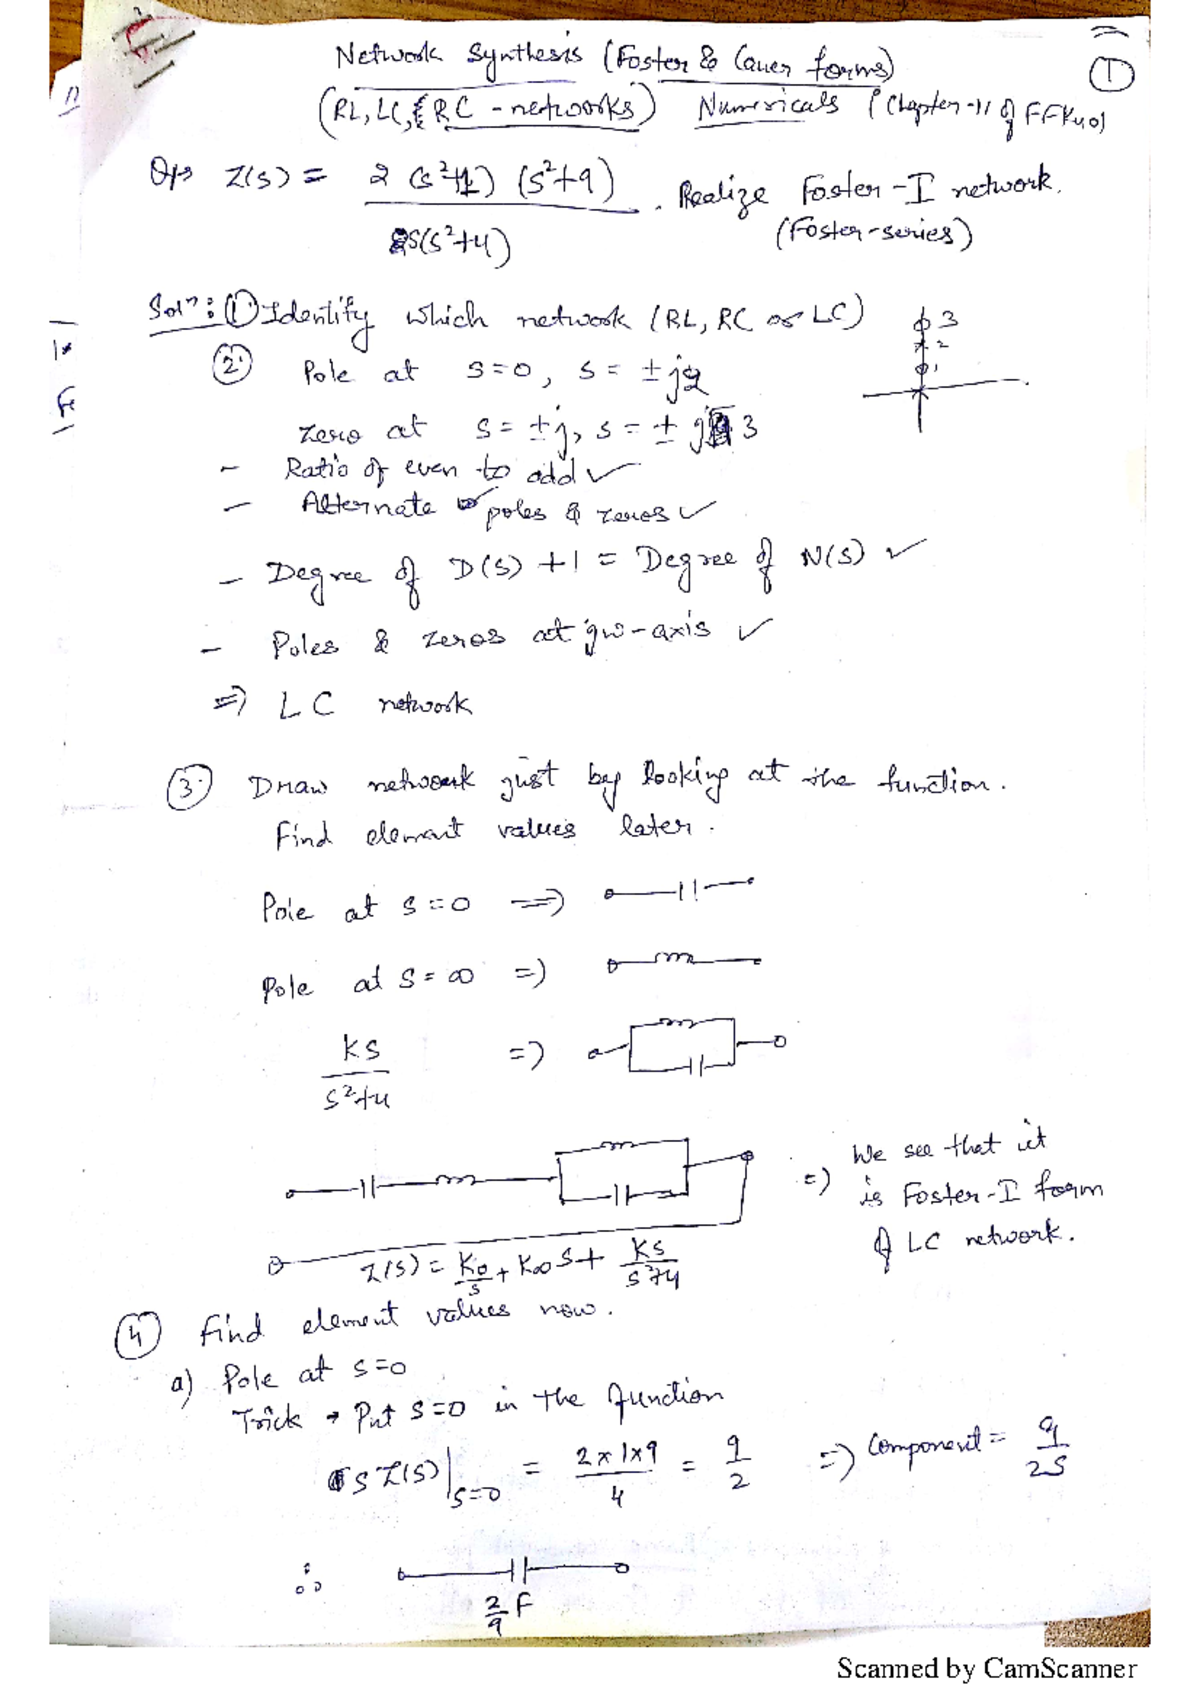 Network Synthesis (Foster & Cauer forms)
(RL, LC, & RC - networks) Numericals (Chapter-11 of FFKuo)
1
Z(s) = 2 (s²+1) (s²+9) / s(s²+4) . Realize Foster-I network.
(Foster-series)
Solⁿ: ① Identify which network (RL, RC or LC)
② Pole at s=0, s = ±j2
Zero at s = ±j, s = ± j3
3
2
1
- Ratio of even to odd ✓
- Alternate poles & zeros ✓
- Degree of D(s) +1 = Degree of N(s) ✓
- Poles & zeros at jw-axis ✓
=> LC network
③ Draw network just by looking at the function.
Find element values later.
Pole at s=0 =>
Pole at s=∞ =>
ks / s²+4 =>
=> We see that it
is Foster-I form
of LC network.
Z(s) = K₀/s + K∞ s + Ks / s²+4
④ Find element values now.
a) Pole at s=0
Trick → Put s=0 in the function
s Z(s)|s=0 = 2x1x9 / 4 = 9/2 => Component = 9/2s
∴ 2/9 F
Scanned by CamScanner